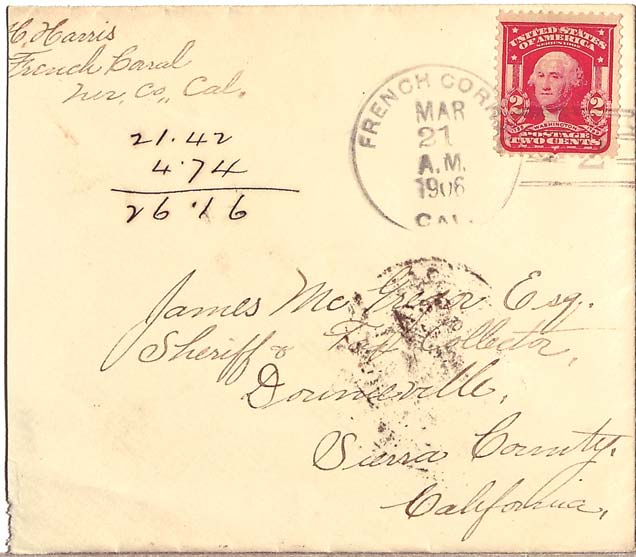 H. Harris
French Corral
Nev. Co., Cal.
21.42
4.74
26.16
FRENCH CORR
MAR
21
A.M.
1906
CAL.
UNITED STATES
OF AMERICA
SERIES 1902
2 2
WASHINGTON
POSTAGE
TWO CENTS
2
James McGregor Esq.
Sheriff & Tax Collector,
Downieville,
Sierra County.
California,